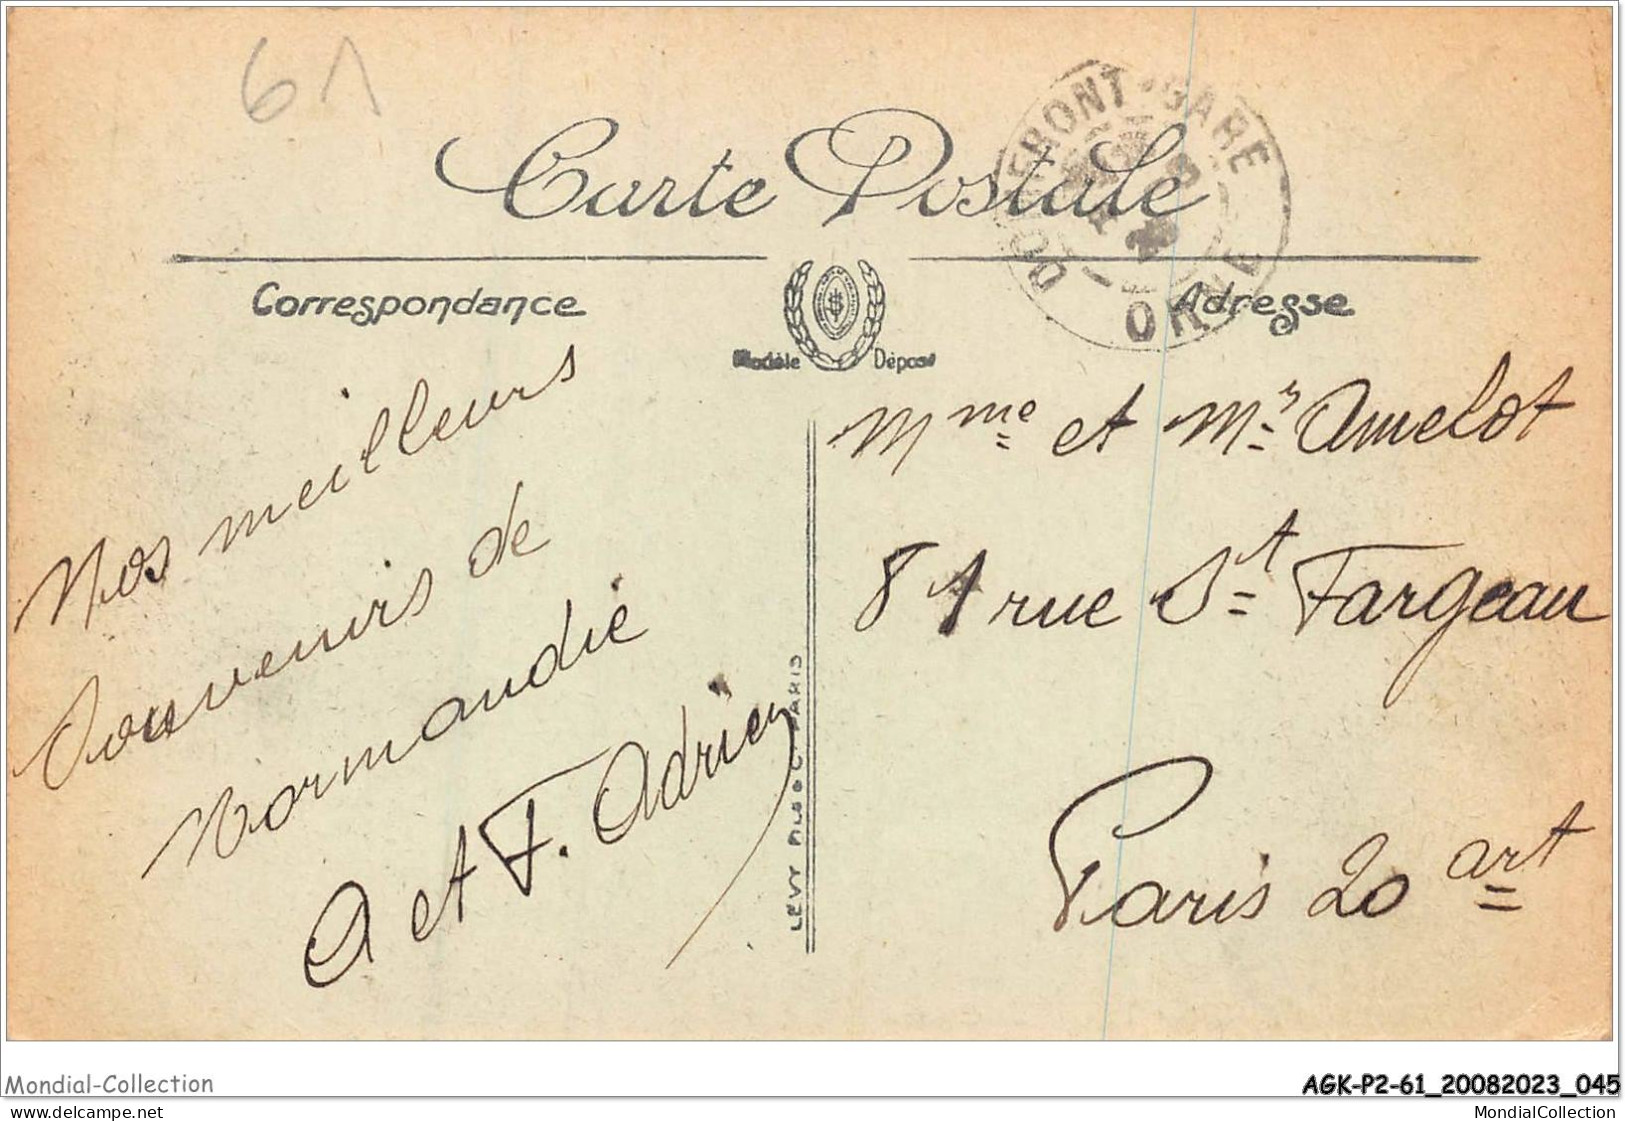 61
Carte Postale
DOMFRONT-GARE
ORNE
Correspondance
Adresse
Modèle Déposé
Nos meilleurs
Souvenirs de
Normandie
A et F. Adrien
Mme et Mr Amelot
81 rue St Fargeau
Paris 20 art
LÉVY PARIS
Mondial-Collection
AGK-P2-61_20082023_045
www.delcampe.net
MondialCollection